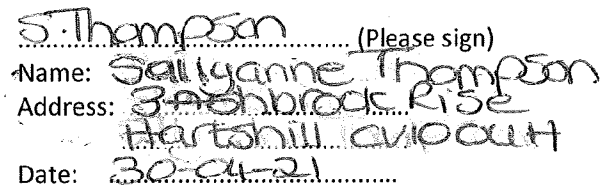 S.Thompson (Please sign)
Name: Sallyanne Thompson
Address: 3 Ashbrook Rise
Hartshill CV10 0UH
Date: 30-04-21